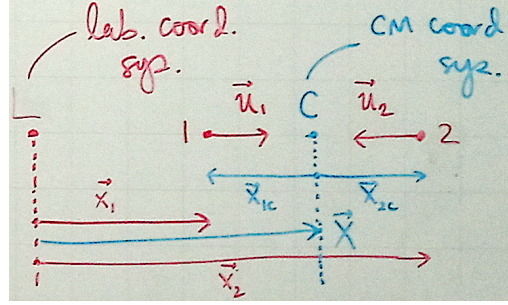 lab. coord. sys.
CM coord sys.
L
1
u⃗₁
C
u⃗₂
2
x⃗₁
x⃗₁c
x⃗₂c
X⃗
x⃗₂